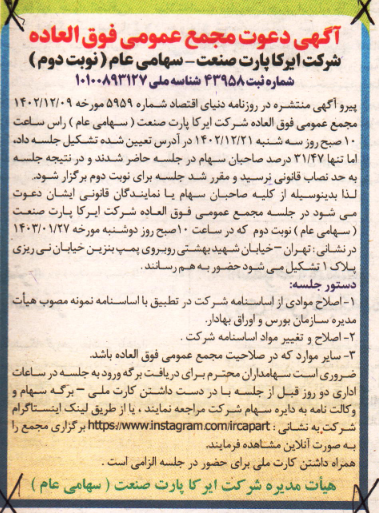 آگهی دعوت مجمع عمومی فوق العاده
شرکت ایرکا پارت صنعت – سهامی عام ( نوبت دوم )
شماره ثبت ۴۳۹۵۸ شناسه ملی ۱۰۱۰۰۸۹۳۱۲۷
پیرو آگهی منتشره در روزنامه دنیای اقتصاد شماره ۵۹۵۹ مورخه ۱۴۰۲/۱۲/۰۹
مجمع عمومی فوق العاده شرکت ایرکا پارت صنعت ( سهامی عام ) راس ساعت
۱۰ صبح روز سه شنبه ۱۴۰۲/۱۲/۲۱ در آدرس تعیین شده تشکیل جلسه داد،
اما تنها ۳۱/۴۷ درصد صاحبان سهام در جلسه حاضر شدند و در نتیجه جلسه
به حد نصاب قانونی نرسید و مقرر شد جلسه برای نوبت دوم برگزار شود.
لذا بدینوسیله از کلیه صاحبان سهام یا نمایندگان قانونی ایشان دعوت
می شود در جلسه مجمع عمومی فوق العاده شرکت ایرکا پارت صنعت
( سهامی عام ) نوبت دوم که در ساعت ۱۰ صبح روز دوشنبه مورخه ۱۴۰۳/۰۱/۲۷
در نشانی : تهران – خیابان شهید بهشتی روبروی پمپ بنزین خیابان نی ریزی
پلاک ۱ تشکیل می شود حضور به هم رسانند .
دستور جلسه:
۱- اصلاح موادی از اساسنامه شرکت در تطبیق با اساسنامه نمونه مصوب هیأت
مدیره سازمان بورس و اوراق بهادار.
۲- اصلاح و تغییر مواد اساسنامه شرکت .
۳- سایر موارد که در صلاحیت مجمع عمومی فوق العاده باشد.
ضروری است سهامداران محترم برای دریافت برگه ورود به جلسه در ساعات
اداری دو روز قبل از جلسه با در دست داشتن کارت ملی – برگه سهام و
وکالت نامه به دایره سهام شرکت مراجعه نمایند ، یا از طریق لینک اینستاگرام
شرکت به نشانی : https://www.instagram.com/ircapart برگزاری مجمع را
به صورت آنلاین مشاهده فرمایند.
همراه داشتن کارت ملی برای حضور در جلسه الزامی است .
هیأت مدیره شرکت ایرکا پارت صنعت ( سهامی عام )